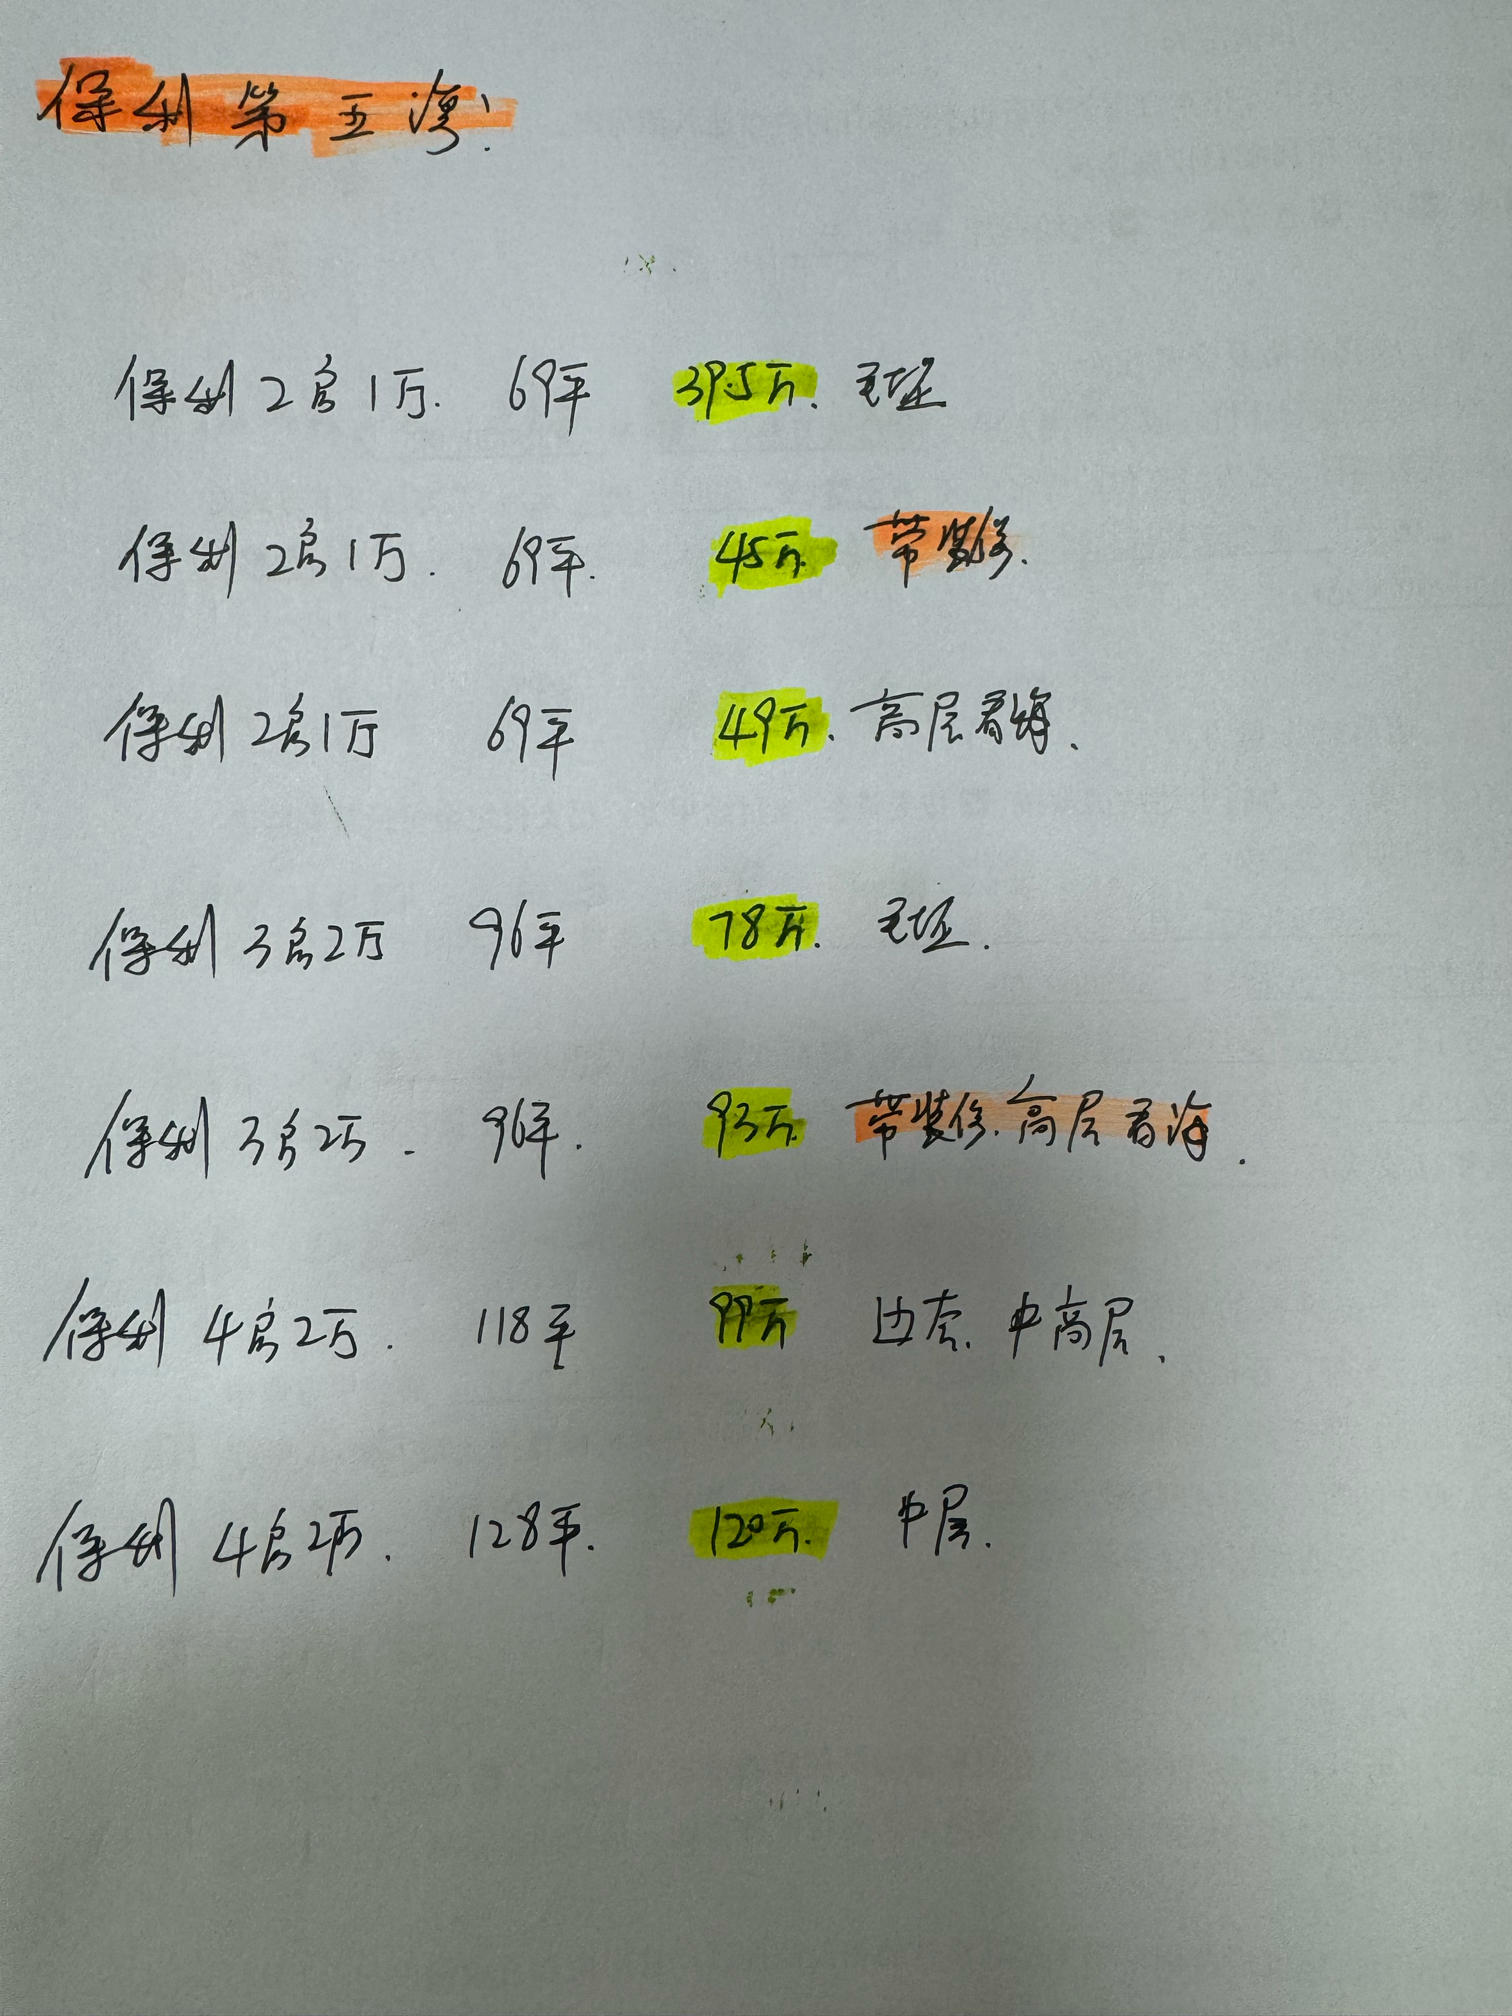 保利第五湾:
保利 2房1厅. 69平 39.5万. 毛坯
保利 2房1厅. 69平. 45万. 带装修.
保利 2房1厅 69平 49万. 高层看海.
保利 3房2厅 96平 78万. 毛坯.
保利 3房2厅. 96平. 93万. 带装修. 高层看海.
保利 4房2厅. 118平 99万 边套. 中高层.
保利 4房2厅. 128平. 120万. 中层.